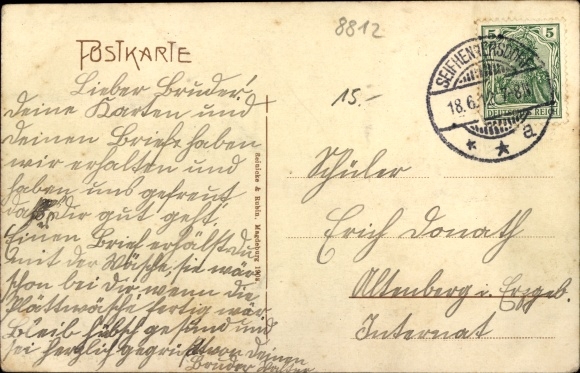 8812
POSTKARTE
5 5
DEUTSCHES REICH
SEIFHENNERSDORF
18.6.
a
15.-
Lieber Bruder!
Deine Karten und
deinen Brief haben
wir erhalten und
haben uns gefreut
daß Dir gut geht.
Einen Brief erhälst du
mit der Wäsche, sie wär
schon bei Dir wenn die
Plättwäsche fertig wär
Bleib hübsch gesund und
sei herzlich gegrüßt von Deinen
Bruder
Reinicke & Rubin, Magdeburg
Schüler
Erich Donath
Altenberg i. Erzgeb.
Internat